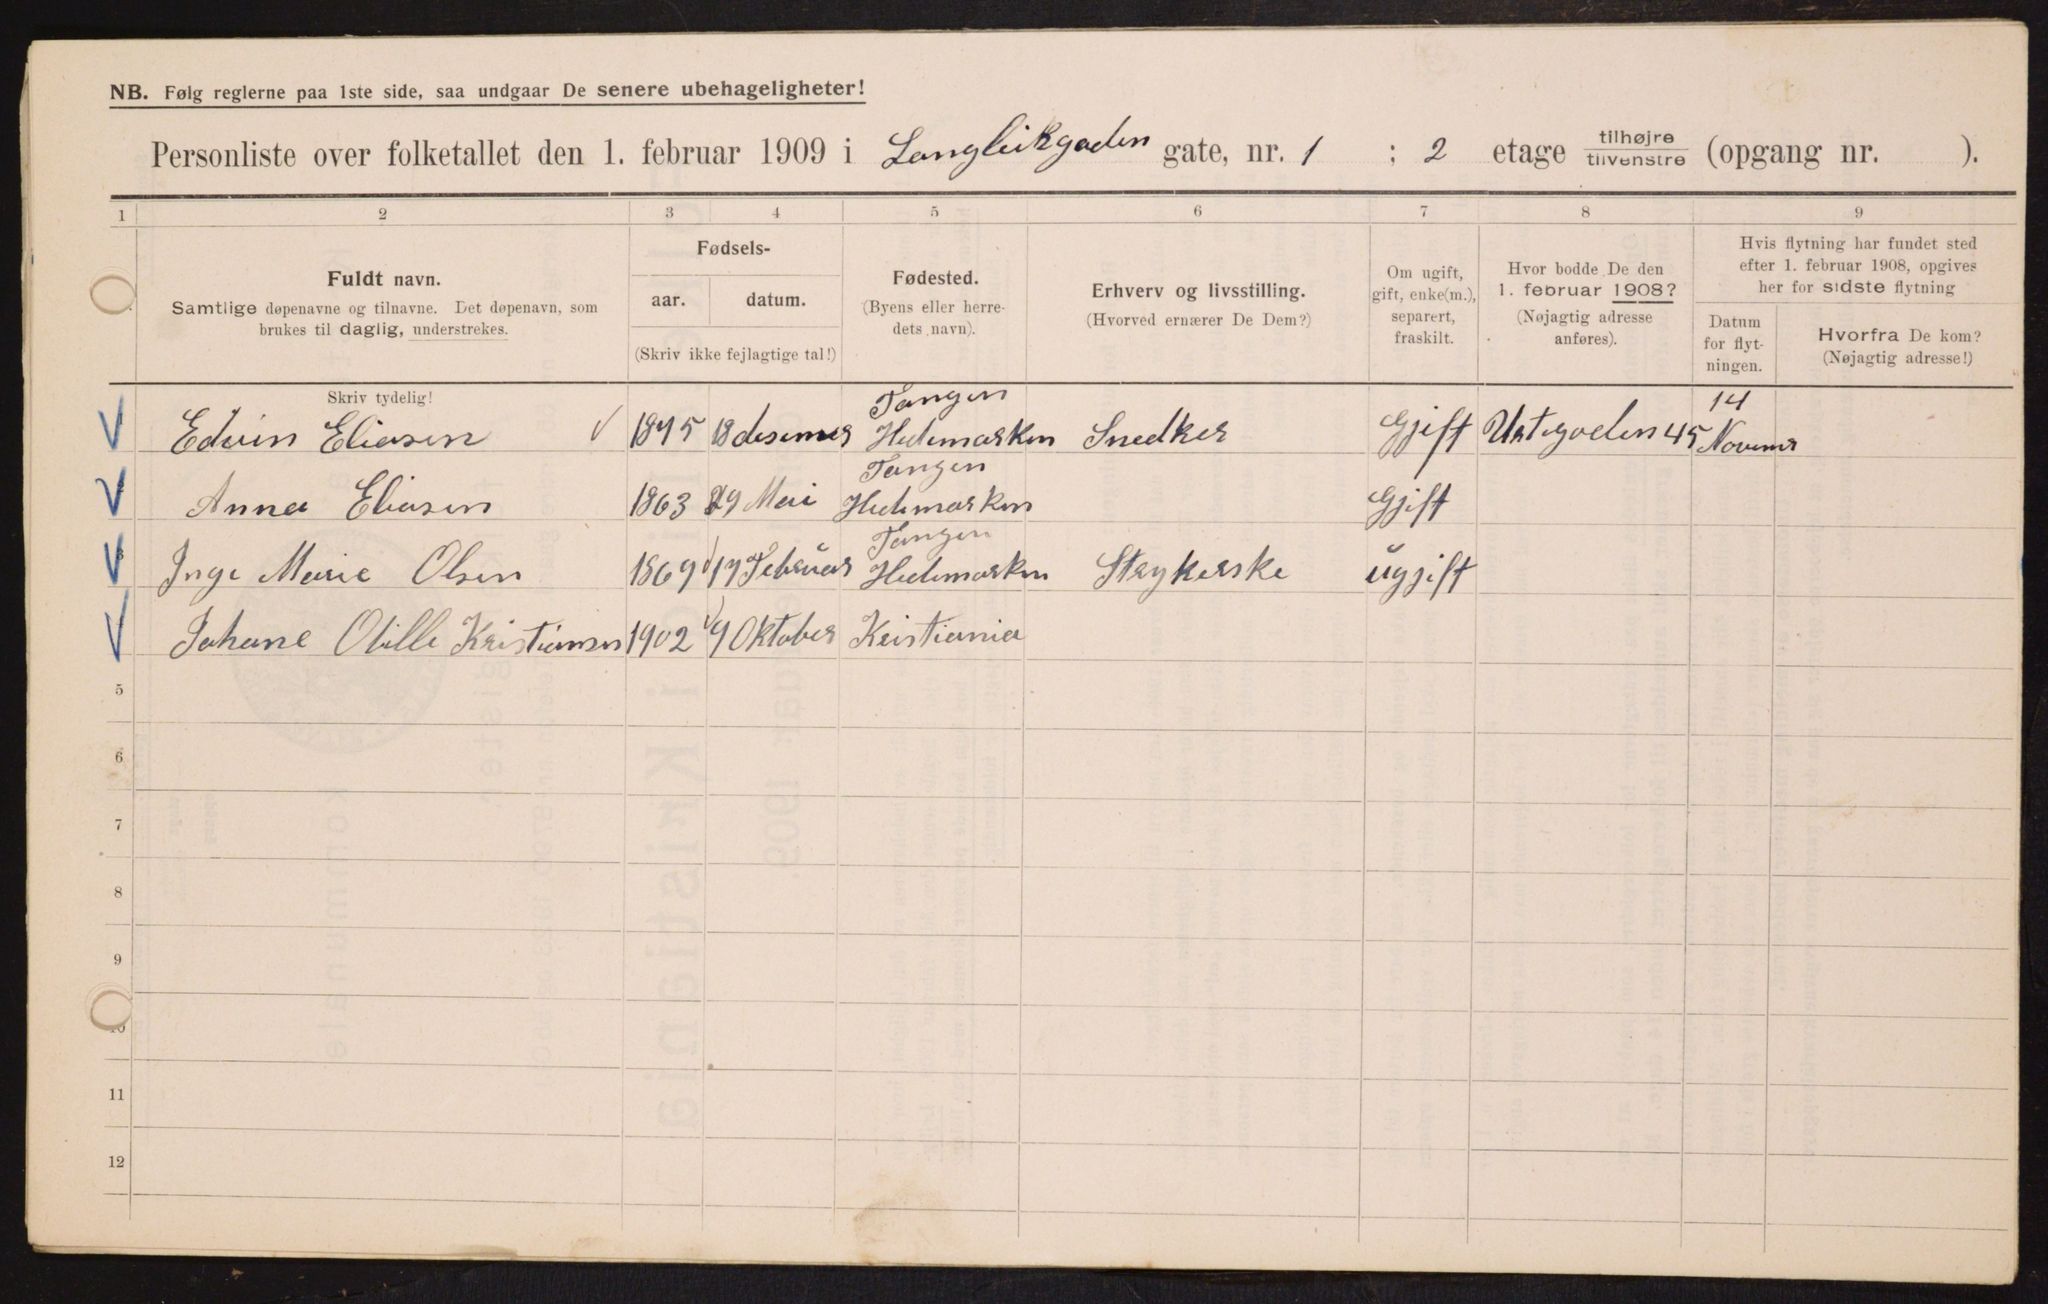 NB. Følg reglerne paa 1ste side, saa undgaar De senere ubehageligheter!
Personliste over folketallet den 1. februar 1909 i Langleikgaden gate, nr. 1 ; 2 etage tilhøjre tilvenstre (opgang nr. ).
1 2 3 4 5 6 7 8 9
Fuldt navn.
Samtlige døpenavne og tilnavne. Det døpenavn, som
brukes til daglig, understrekes.
Fødsels-
aar. datum.
(Skriv ikke fejlagtige tal!)
Fødested.
(Byens eller herre-
dets navn).
Erhverv og livsstilling.
(Hvorved ernærer De Dem?)
Om ugift,
gift, enke(m.),
separert,
fraskilt.
Hvor bodde De den
1. februar 1908?
(Nøjagtig adresse
anføres).
Hvis flytning har fundet sted
efter 1. februar 1908, opgives
her for sidste flytning
Datum
for flyt-
ningen.
Hvorfra De kom?
(Nøjagtig adresse!)
Skriv tydelig!
Tangen 14
Edvin Eliasen 1875 18 desemer Hedemarken Snedker Gjift Urtegaden 45 Novemer
Tangen
Anna Eliasen 1863 29 Mai Hedemarken Gjift
Tangen
3 Inge Marie Olsen 1869 17 Februar Hedemarken Strykerske ugjift
Johane Otille Kristiansen 1902 9 Oktober Kristiania
5
6
7
8
9
10
11
12